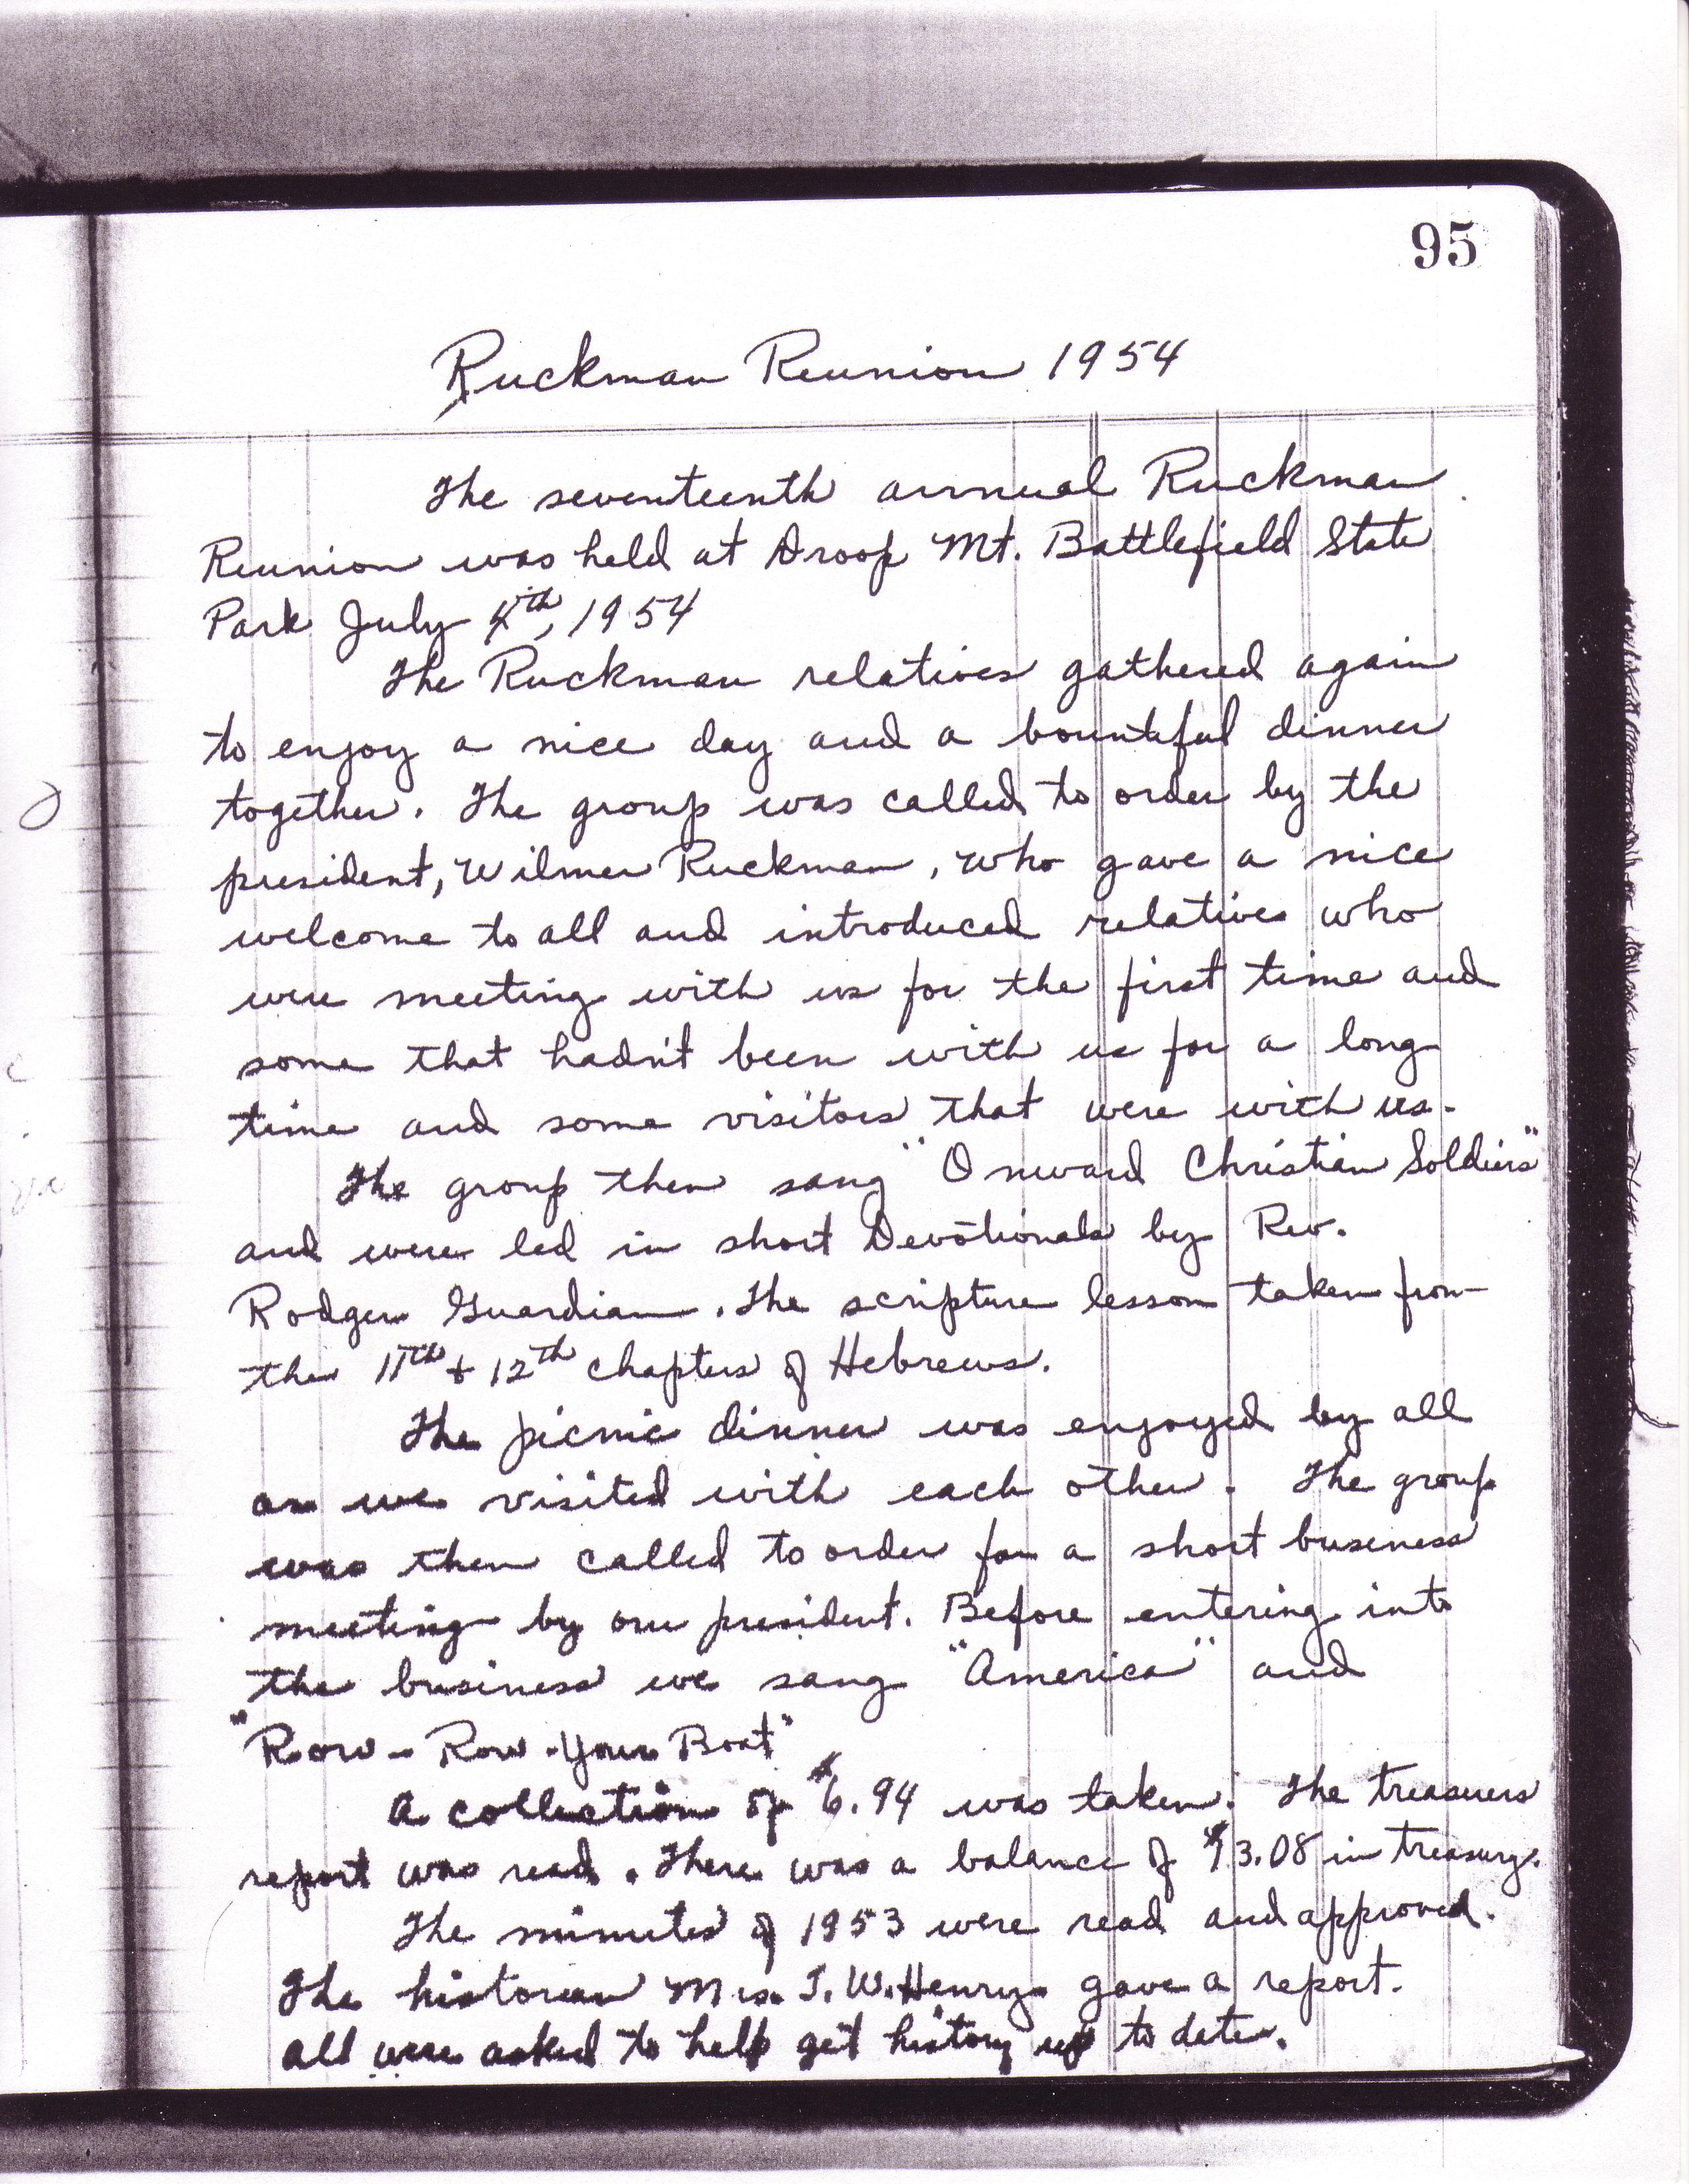 95
Ruckman Reunion 1954
The seventeenth annual Ruckman
Reunion was held at Droop Mt. Battlefield State
Park July 4th, 1954
The Ruckman relatives gathered again
to enjoy a nice day and a bountiful dinner
together. The group was called to order by the
president, Wilmer Ruckman, who gave a nice
welcome to all and introduced relatives who
were meeting with us for the first time and
some that hadn't been with us for a long
time and some visitors that were with us.
The group then sang "Onward Christian Soldiers"
and were led in short Devotionals by Rev.
Rodger Guardian. The scripture lesson taken from
the 11th + 12th chapters of Hebrews.
The picnic dinner was enjoyed by all
as we visited with each other. The group
was then called to order for a short business
meeting by our president. Before entering into
the business we sang "America" and
"Row - Row - Your Boat"
A collection of $6.94 was taken. The treasurers
report was read. There was a balance of $3.08 in treasury.
The minutes of 1953 were read and approved.
The historian Mrs. T. W. Henry gave a report.
All were asked to help get history up to date.